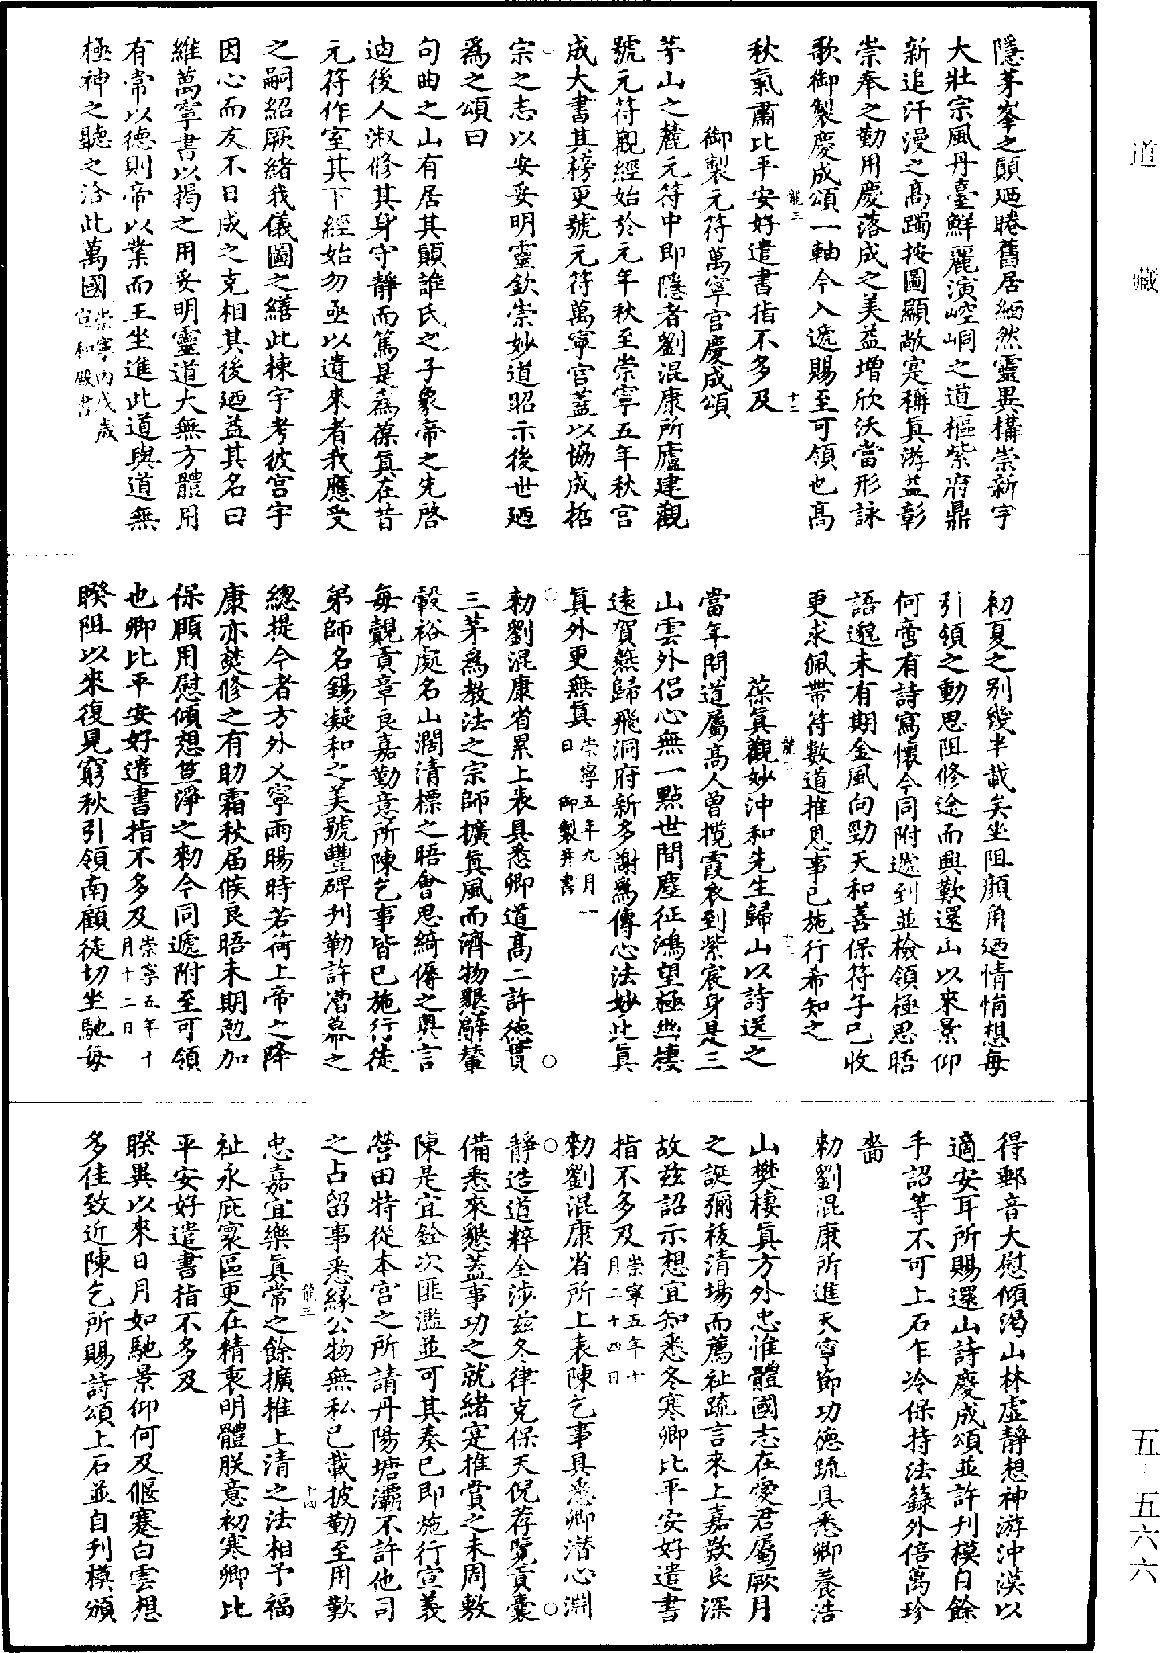 道藏
五‧五六六
隱茅峯之顛廼睠舊居緬然靈異構崇新宇
大壯宗風丹臺鮮麗演崆峒之道樞紫府鼎
新追汗漫之高躅按圖顯敞寔稱眞游益彰
崇奉之勤用慶落成之美益增欣沃當形詠
歌御製慶成頌一軸今入遞賜至可領也高
龍三 十二
秋氣肅比平安好遣書指不多及
御製元符萬寧宮慶成頌
茅山之麓元符中即隱者劉混康所廬建觀
號元符觀經始於元年秋至崇寧五年秋宮
成大書其榜更號元符萬寧宮蓋以協成哲
宗之志以安妥明靈欽崇妙道昭示後世廼
爲之頌曰
句曲之山有居其顛誰氏之子象帝之先啓
迪後人淑修其身守靜而篤是爲葆眞在昔
元符作室其下經始勿亟以遺來者我應受
之嗣紹厥緒我儀圖之繕此棟宇考彼宮宇
因心而友不日成之克相其後廼益其名曰
維萬寧書以揭之用妥明靈道大無方體用
有常以德則帝以業而王坐進此道與道無
極神之聽之洽此萬國崇寧丙戌歲
宣和殿書
初夏之别幾半載矣坐阻顔角廼情悄想每
引領之動思阻修途而興歎還山以來景仰
何啻有詩寫懷今同附遞到並檢領極思晤
語邈未有期金風向勁天和善保符子已收
更求佩帶符數道推恩事已施行希知之
葆眞觀妙沖和先生歸山以詩送之
當年問道屬高人曾攬霞衣到紫宸身是三
山雲外侣心無一點世間塵征鴻望極幽棲
遠賀燕歸飛洞府新多謝爲傳心法妙此眞
眞外更無眞崇寧五年九月一
日御製并書
勑劉混康省累上表具悉卿道高二許德貫
三茅爲教法之宗師擴眞風而濟物懇辭輦
轂裕處名山濶清標之晤會思綺儔之輿言
每覿貢章良嘉勤意所陳乞事皆已施行徒
弟師名錫凝和之美號豐碑刊勒許漕幕之
總提今者方外乂寧雨暘時若荷上帝之降
康亦焚修之有助霜秋届候良晤未期勉加
保頤用慰傾想苴淨之勑今同遞附至可領
也卿比平安好遣書指不多及崇寧五年十
月十二日
暌阻以來復見窮秋引領南顧徒切坐馳每
得郵音大慰傾渴山林虛靜想神游沖漠以
適安耳所賜還山詩慶成頌並許刊模自餘
手詔等不可上石乍冷保持法籙外倍萬珍
嗇
勑劉混康所進天寧節功德疏具悉卿養浩
山樊棲眞方外忠惟體國志在愛君屬厥月
之誕彌祓清場而薦祉疏言來上嘉歎良深
故兹詔示想宜知悉冬寒卿比平安好遣書
指不多及崇寧五年十
月二十四日
勑劉混康省所上表陳乞事具悉卿潛心淵
靜造道粹全涉兹冬律克保天倪荐覽貢囊
備悉來懇蓋事功之就緒寔推賞之未周敷
陳是宜銓次匪濫並可其奏已即施行宣義
營田特從本宮之所請丹陽塘灞不許他司
之占留事悉緣公物無私已載披勤至用歎
龍三 十四
忠嘉宜樂眞常之餘擴推上清之法相予福
祉永庇寰區更在精衷明體朕意初寒卿比
平安好遣書指不多及
暌異以來日月如馳景仰何及偃蹇白雲想
多佳致近陳乞所賜詩頌上石並自刊模頒